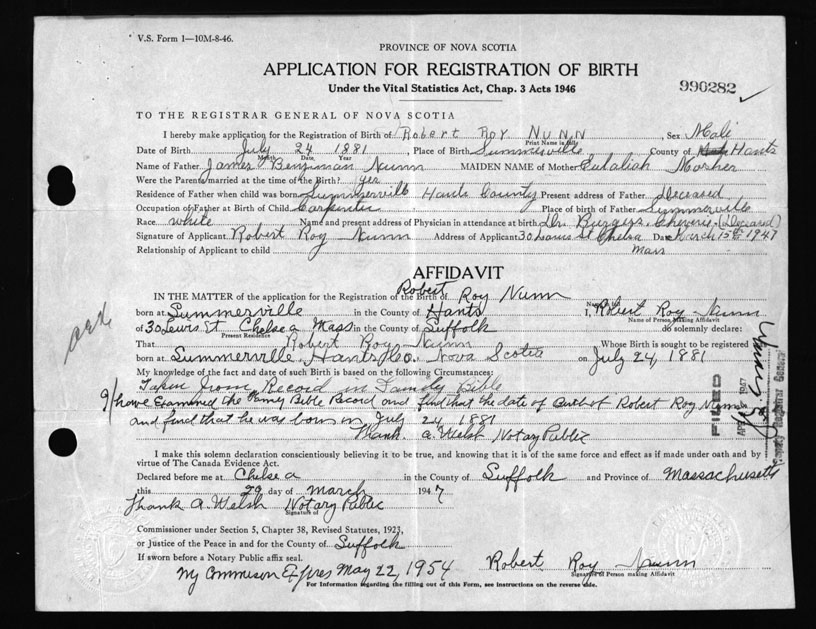 V.S. Form 1—10M-8-46.
PROVINCE OF NOVA SCOTIA
APPLICATION FOR REGISTRATION OF BIRTH
990282
Under the Vital Statistics Act, Chap. 3 Acts 1946
TO THE REGISTRAR GENERAL OF NOVA SCOTIA
I hereby make application for the Registration of Birth of Robert Roy Nunn, Sex Male
Print Name in full
Date of Birth July 24 1881 Place of Birth Summerville County of Hants
Month Date Year
Name of Father James Benjiman Nunn MAIDEN NAME of Mother Eulaliah Mosher
Were the Parents married at the time of the Birth? yes
Residence of Father when child was born Summerville Hants County Present address of Father deceased
Occupation of Father at Birth of Child Carpenter Place of birth of Father Summerville
Race white Name and present address of Physician in attendance at birth Dr. Burgess, Cheverie, (Deceased)
Signature of Applicant Robert Roy Nunn Address of Applicant 30 Lewis St Chelsea Date March 15th 1947
Relationship of Applicant to child Mass
AFFIDAVIT
IN THE MATTER of the application for the Registration of the Birth of Robert Roy Nunn
born at Summerville in the County of Hants I, Robert Roy Nunn
Name in full
Name of Person Making Affidavit
of 30 Lewis St Chelsea Mass in the County of Suffolk do solemnly declare:
Present Residence
That Robert Roy Nunn Whose Birth is sought to be registered
born at Summerville, Hants Co. Nova Scotia on July 24, 1881
My knowledge of the fact and date of such Birth is based on the following Circumstances:
Taken from Record in Family Bible
I have Examined the Family Bible Record and find that the date of Birth of Robert Roy Nunn
and find that he was born on July 24 1881
Frank A. Welsh Notary Public
FILED
1947
Deputy Registrar General
I make this solemn declaration conscientiously believing it to be true, and knowing that it is of the same force and effect as if made under oath and by
virtue of The Canada Evidence Act.
Declared before me at Chelsea in the County of Suffolk and Province of Massachusetts
this 29 day of March 1947
Frank A. Welsh Notary Public
Signature of
Commissioner under Section 5, Chapter 38, Revised Statutes, 1923,
or Justice of the Peace in and for the County of Suffolk
If sworn before a Notary Public affix seal.
Robert Roy Nunn
Signature of Person making Affidavit
My Commission Expires May 22, 1954
For Information regarding the filling out of this Form, see instructions on the reverse side.